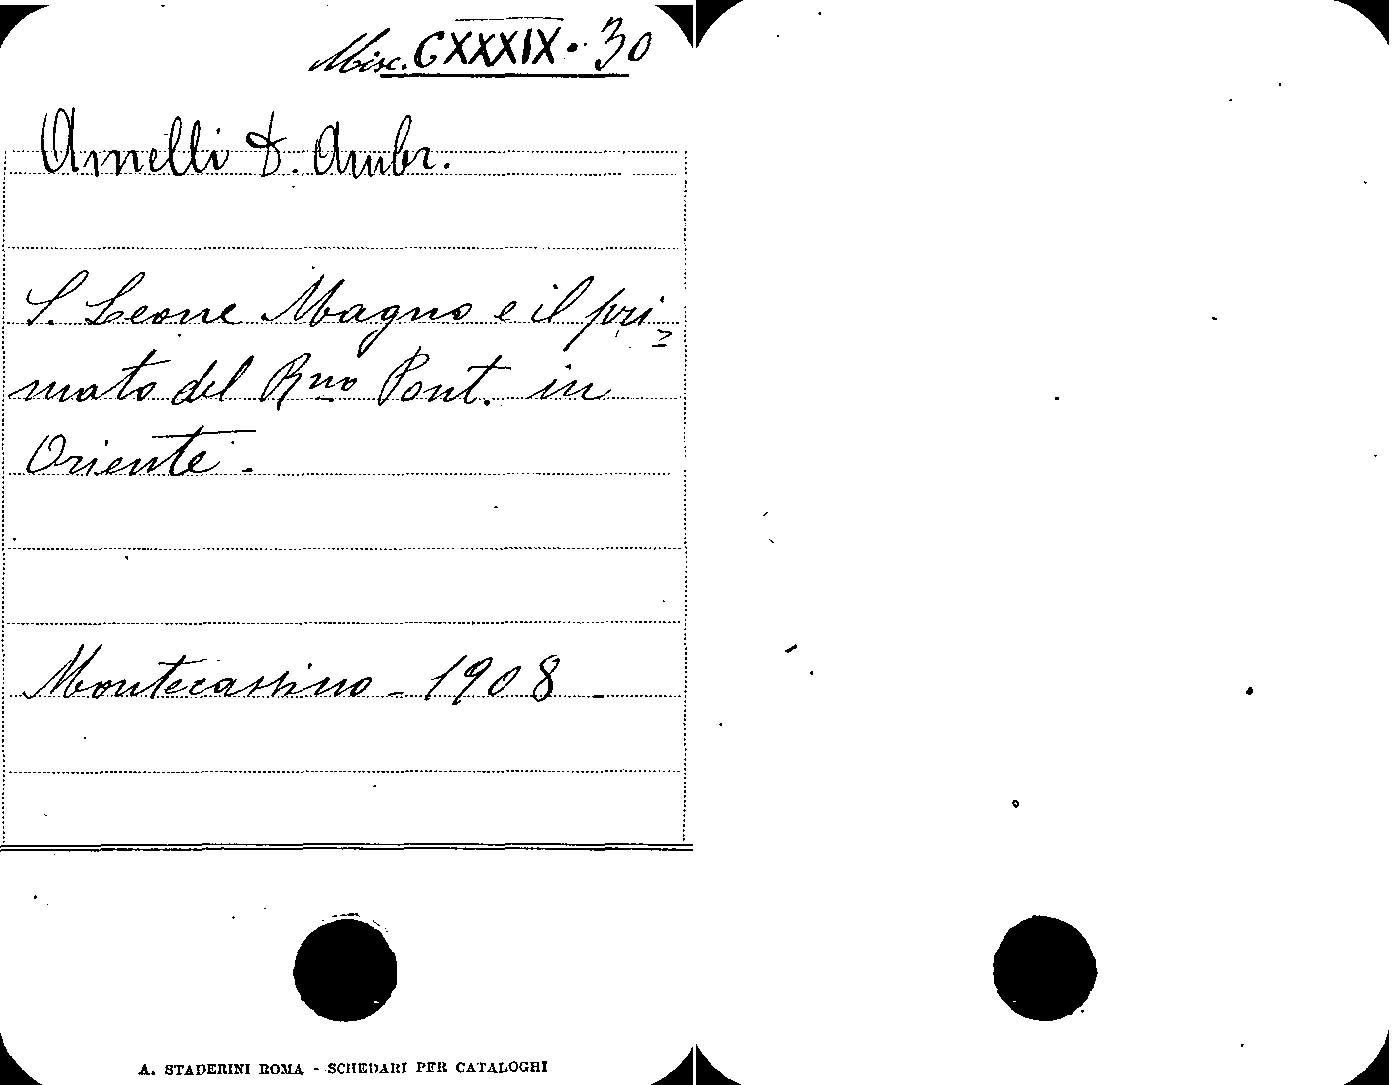 Misc. CXXXIX. 30
Amelli D. Ambr.
S. Leone Magno e il pri=
mato del Rno Pont. in
Oriente.
Montecassino - 1908 -
A. STADERINI ROMA - SCHEDARI PER CATALOGHI